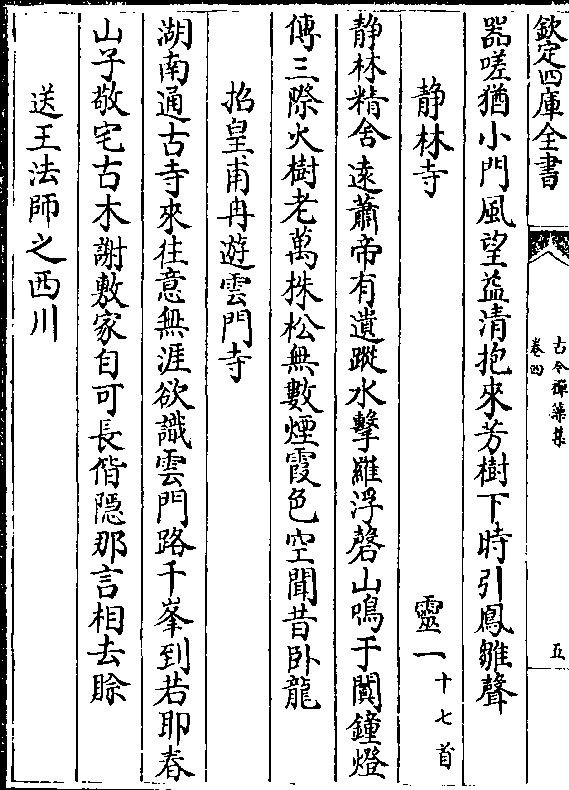 欽定四庫全書
古今禪藻集
卷四
五
器嗟猶小門風望益清抱來芳樹下時引鳳雛聲
靜林寺
靈一十七首
静林精舍遠蕭帝有遺蹤水擊羅浮磬山鳴于闐鐘燈
傳三際火樹老萬株松無數煙霞色空聞昔卧龍
招皇甫冉遊雲門寺
湖南通古寺來往意無涯欲識雲門路千峯到若耶春
山子敬宅古木謝敷家自可長偕隠那言相去賖
送王法師之西川